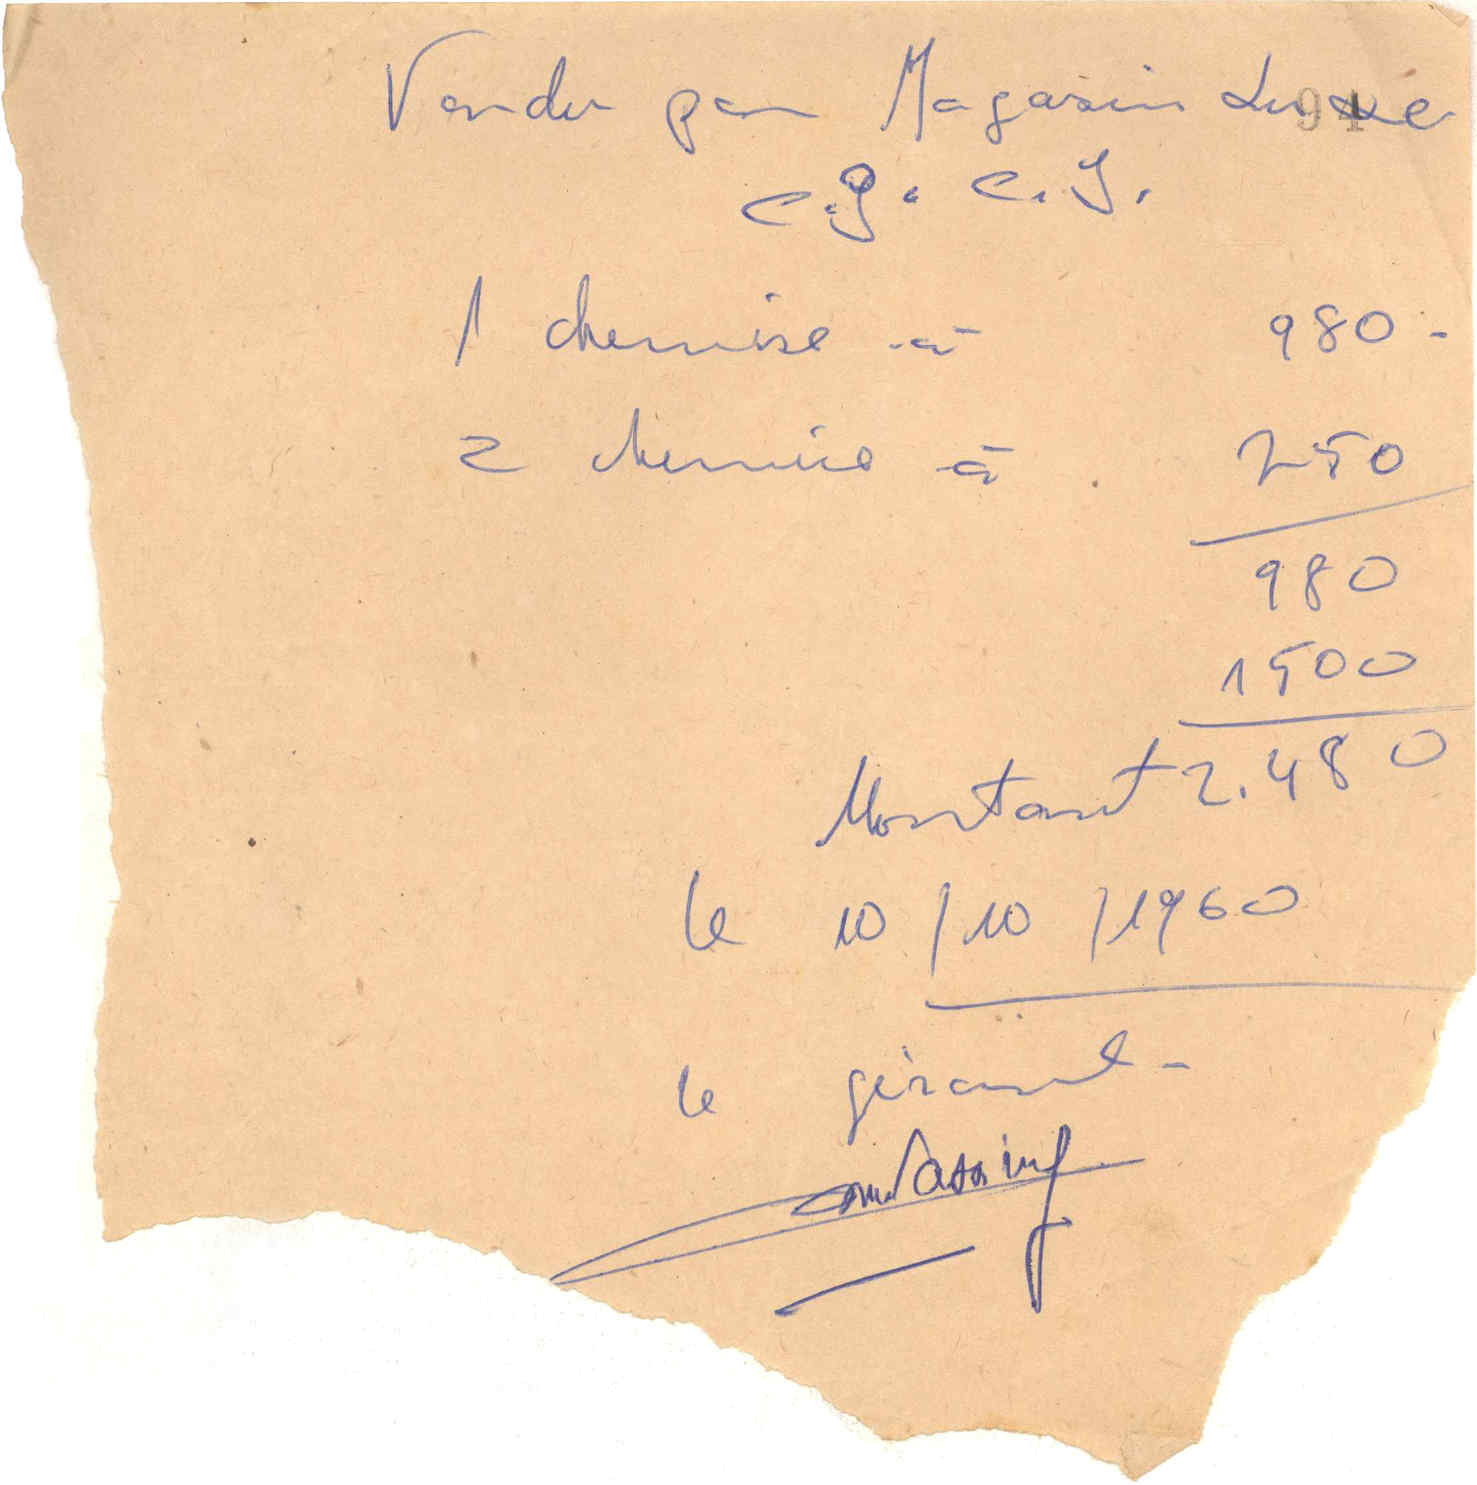 Vendu par Magasin Luxe
94
C.G.C.I.
1 chemise à 980 -
2 chemise à 750
980
1500
Montant 2.480
le 10/10/1960
le gérant -